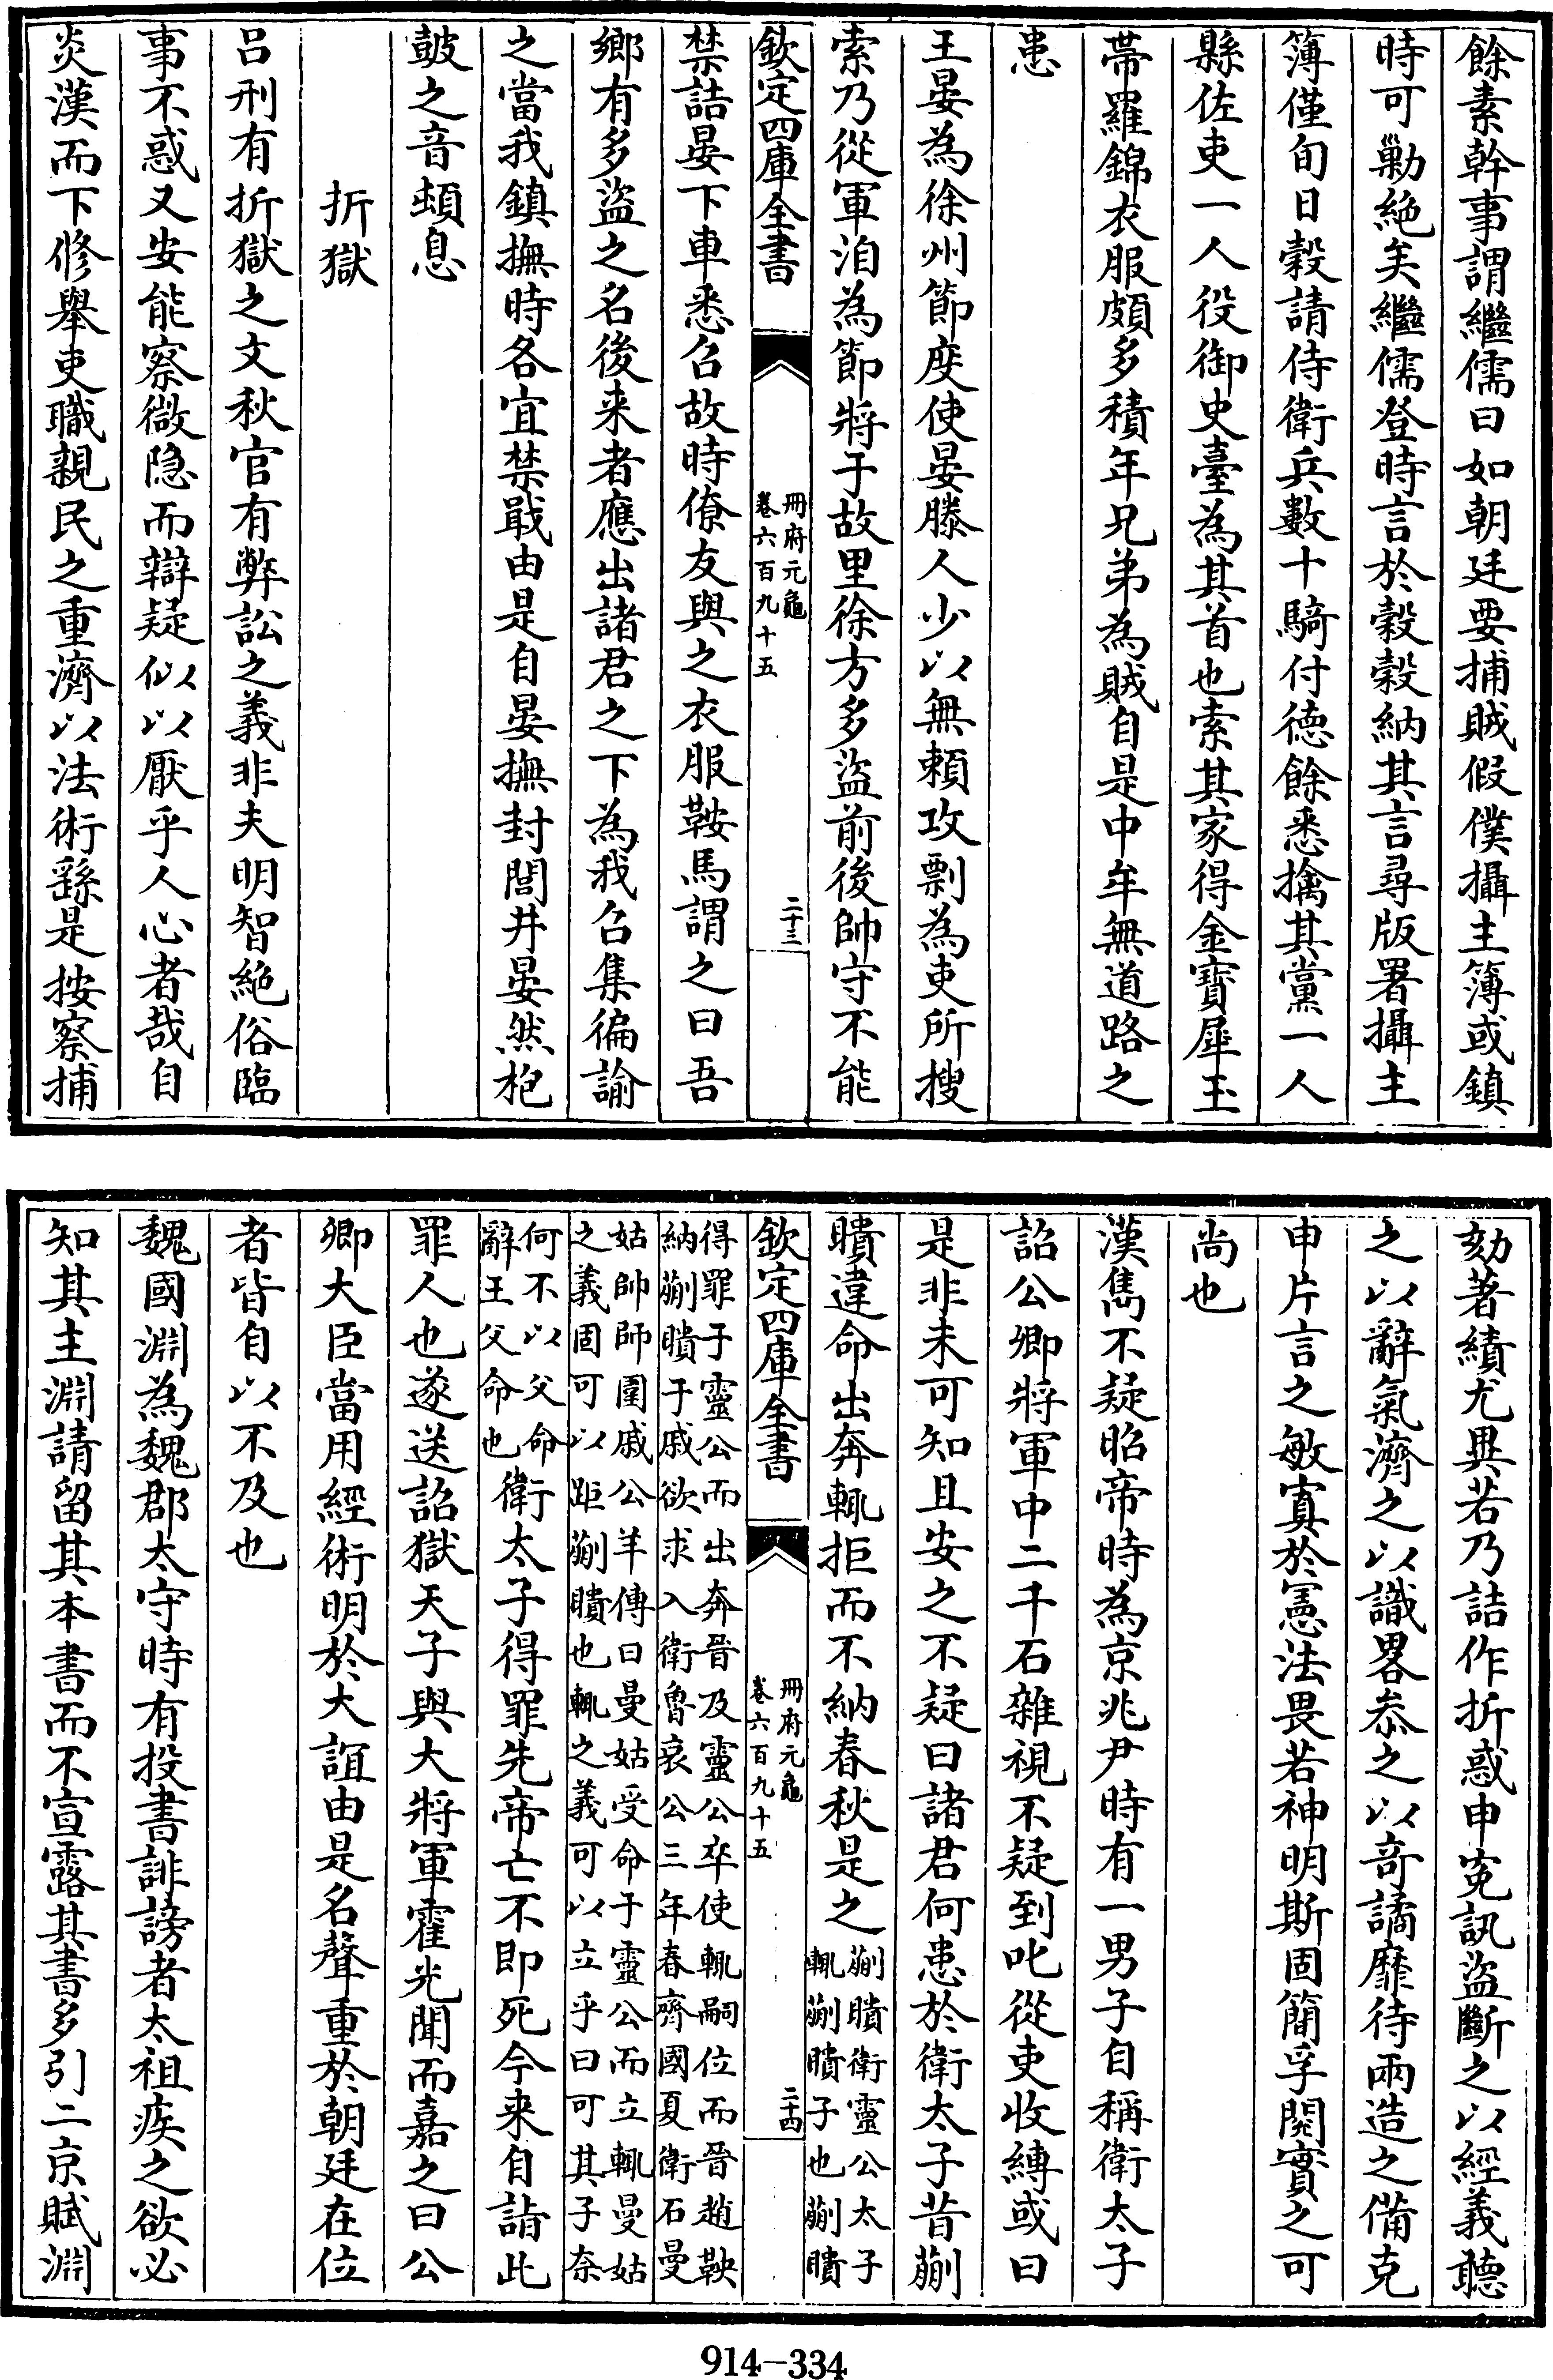 餘素幹事謂繼儒曰如朝廷要捕賊假僕攝主簿或鎮
時可勦絶矣繼儒登時言於穀穀納其言尋版署攝主
簿僅旬日穀請侍衛兵數十騎付徳餘悉擒其黨一人
縣佐吏一人役御史臺為其首也索其家得金寶犀玉
帶羅錦衣服頗多積年兄弟為賊自是中牟無道路之
患
王晏為徐州節度使晏滕人少以無頼攻剽為吏所搜
索乃從軍洎為節將于故里徐方多盜前後帥守不能
欽定四庫全書
冊府元龜
卷六百九十五
二十三
禁詰晏下車悉召故時僚友與之衣服鞍馬謂之曰吾
鄉有多盜之名後来者應出諸君之下為我召集徧諭
之當我鎮撫時各宜禁戢由是自晏撫封閭井晏然枹
鼓之音頓息
折獄
吕刑有折獄之文秋官有弊訟之義非夫明智絶俗臨
事不惑又安能察微隐而辯疑似以厭乎人心者哉自
炎漢而下修舉吏職親民之重濟以法術繇是按察捕
劾著績尤異若乃詰作折惑申寃訊盜斷之以經義聽
之以辭氣濟之以識畧叅之以奇譎靡待兩造之備克
申片言之敏寘於憲法畏若神明斯固簡孚閱實之可
尚也
漢雋不疑昭帝時為京兆尹時有一男子自稱衛太子
詔公卿將軍中二千石雜視不疑到叱從吏收縛或曰
是非未可知且安之不疑曰諸君何患於衛太子昔蒯
聵違命出奔輒拒而不納春秋是之
蒯聵衛靈公太子
輒蒯聵子也蒯聵
欽定四庫全書
冊府元龜
卷六百九十五
二十四
得罪于靈公而出奔晉及靈公卒使輒嗣位而晉趙鞅
納蒯聵于戚欲求入衛魯哀公三年春齊國夏衛石曼
姑帥師圍戚公羊傳曰曼姑受命于靈公而立輒曼姑
之義固可以距蒯聵也輒之義可以立乎曰可其子奈
何不以父命
辭王父命也
衛太子得罪先帝亡不即死今来自詣此
罪人也遂送詔獄天子與大將軍霍光聞而嘉之曰公
卿大臣當用經術明於大誼由是名聲重於朝廷在位
者皆自以不及也
魏國淵為魏郡太守時有投書誹謗者太祖疾之欲必
知其主淵請留其本書而不宣露其書多引二京賦淵
914-334